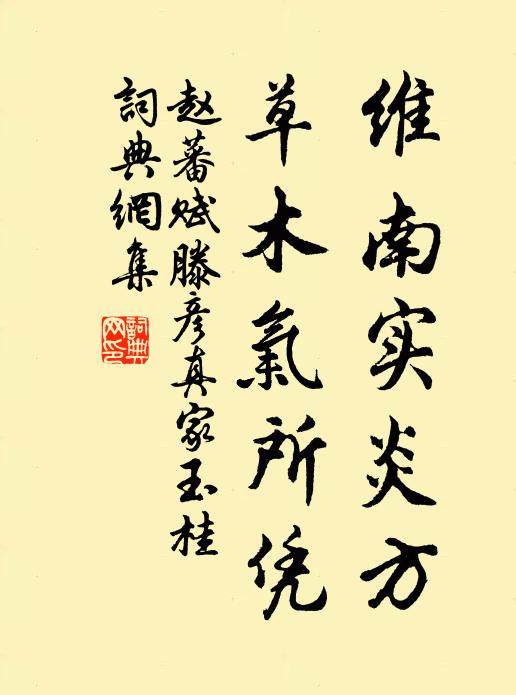 维南实炎方
草木氣所凭
赵蕃赋滕彦真家玉桂
詞典網集
詞典
网印